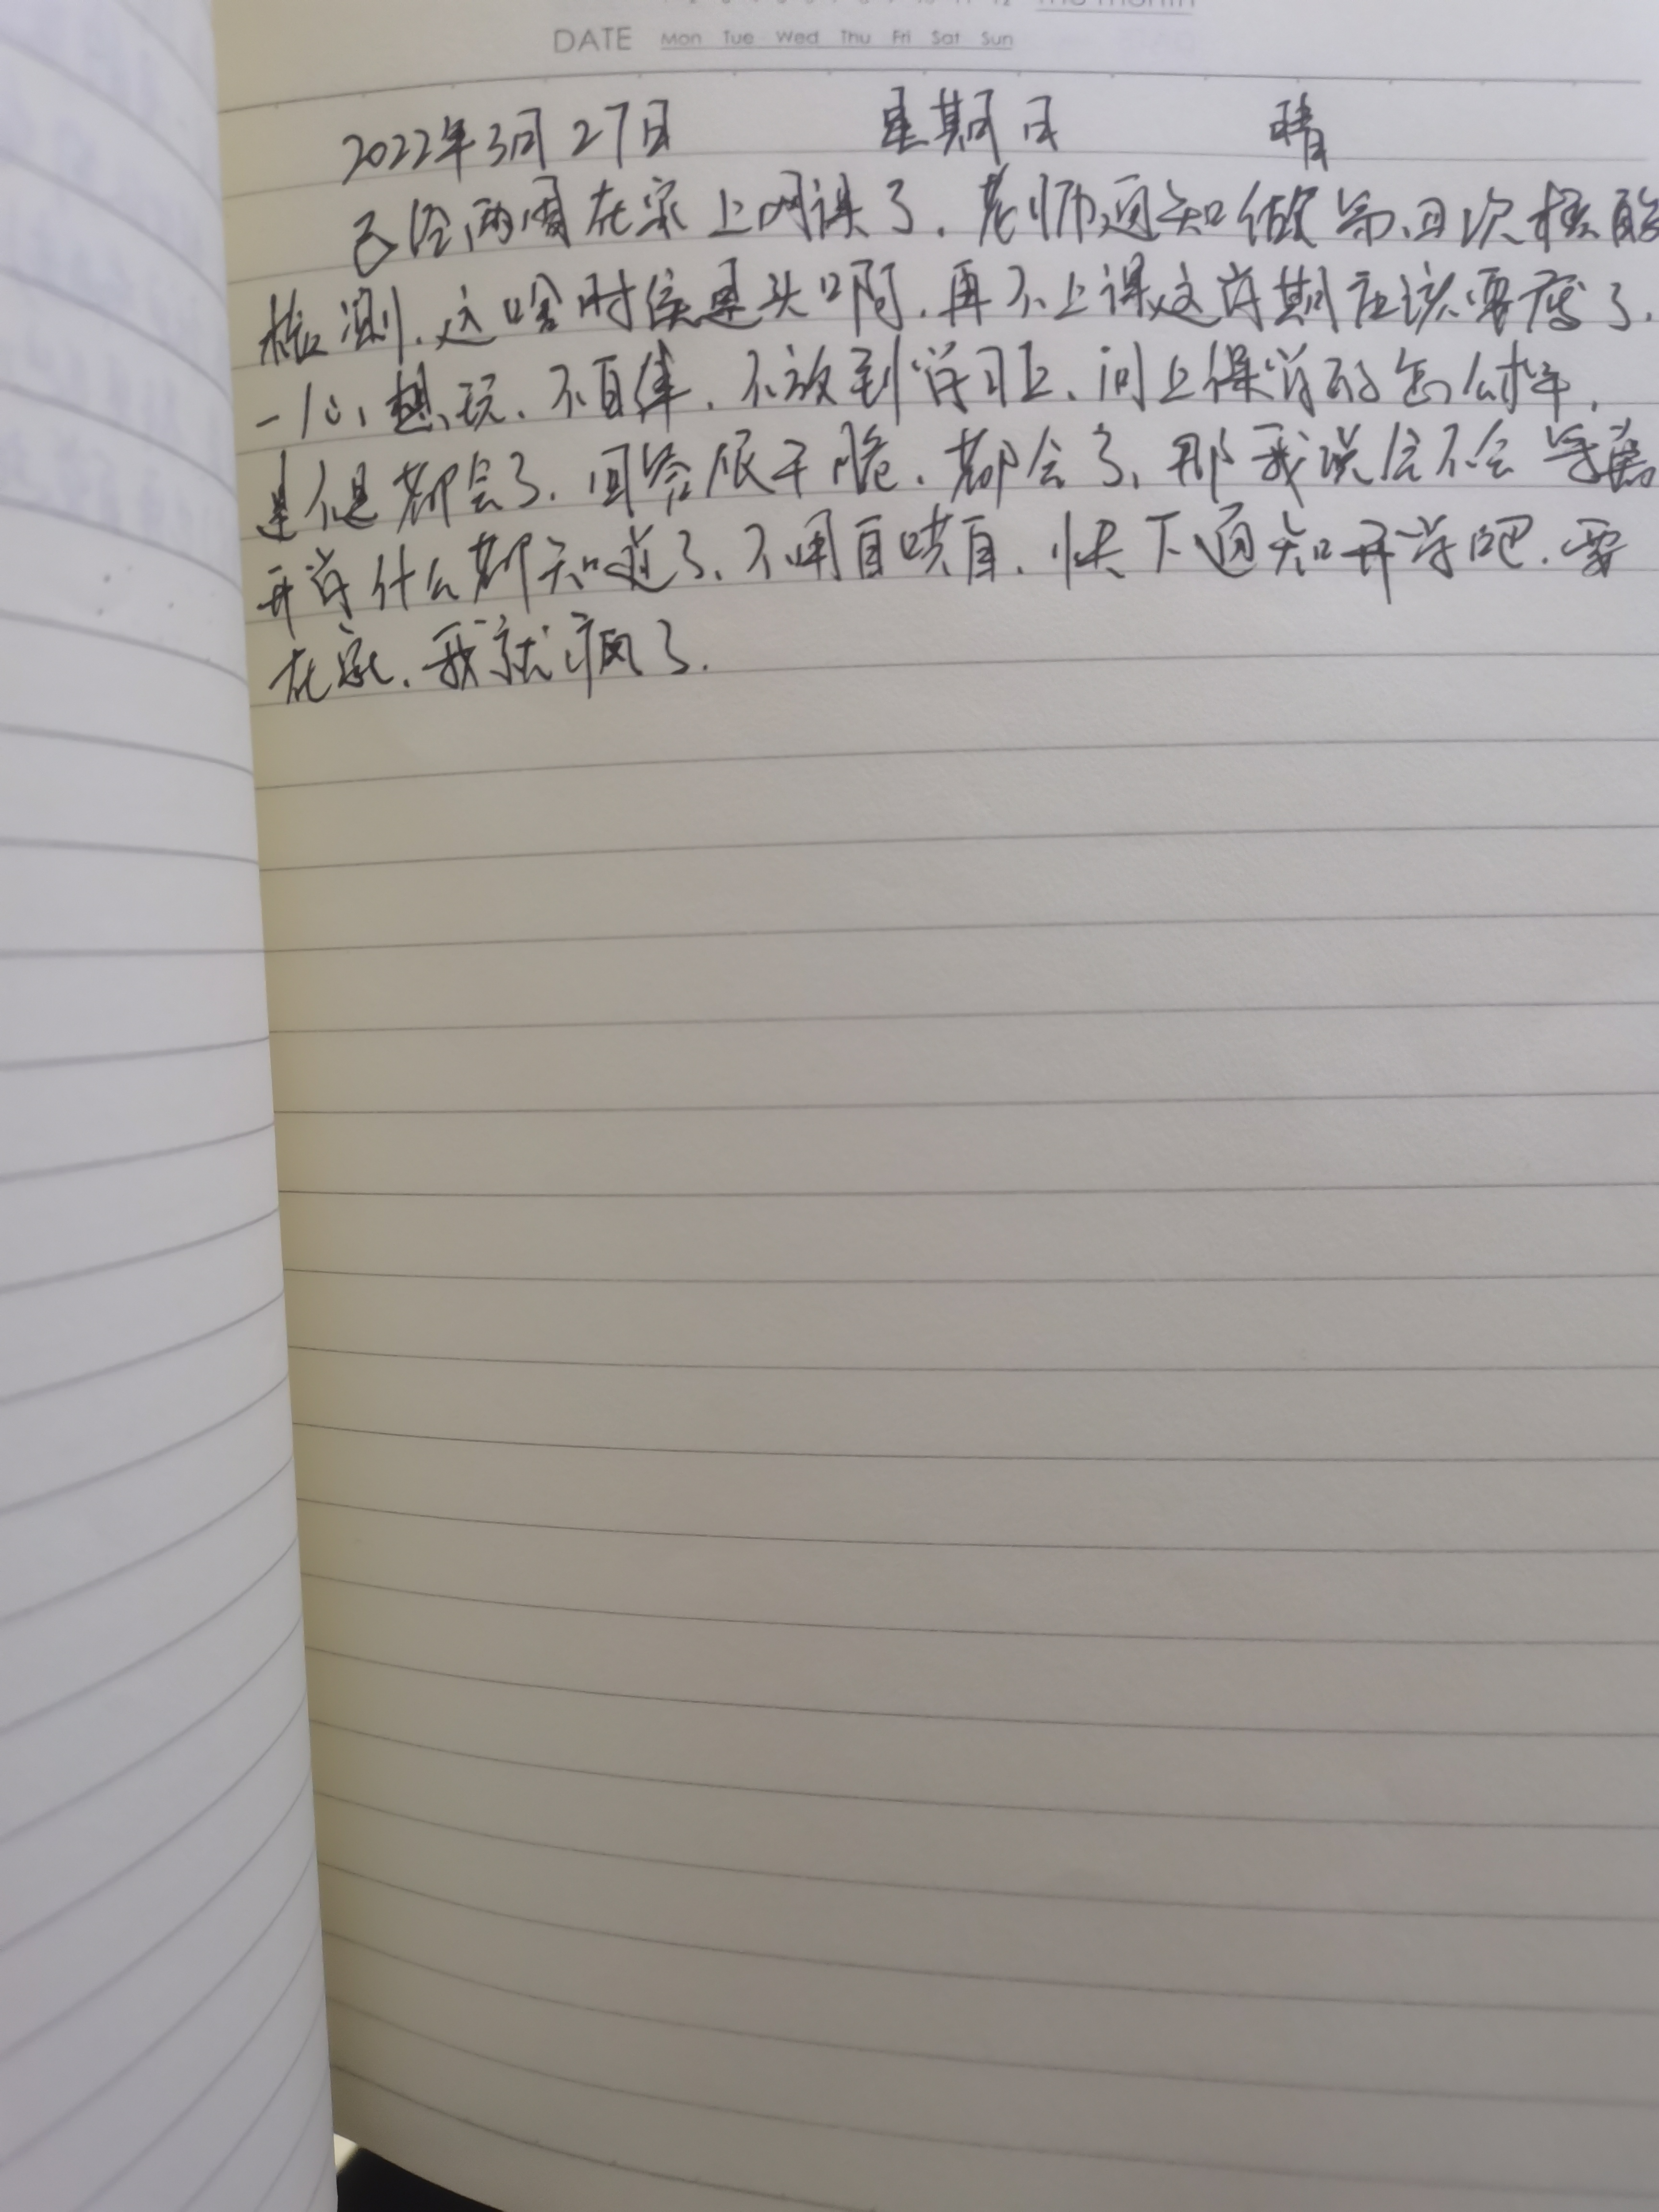 DATE Mon Tue Wed Thu Fri Sat Sun
2022年3月27日 星期日 晴
已经两周在家上网课了.老师通知做第四次核酸
检测.这啥时侯是头啊.再不上课这学期应该要废了.
一心想玩.不自律.不放到学习上.问上课学的怎么样.
是不是都会了.回答很干脆.都会了.那我说会不会等
开学什么都知道了.不用自哄自.快下通知开学吧.要
在家.我就疯了.